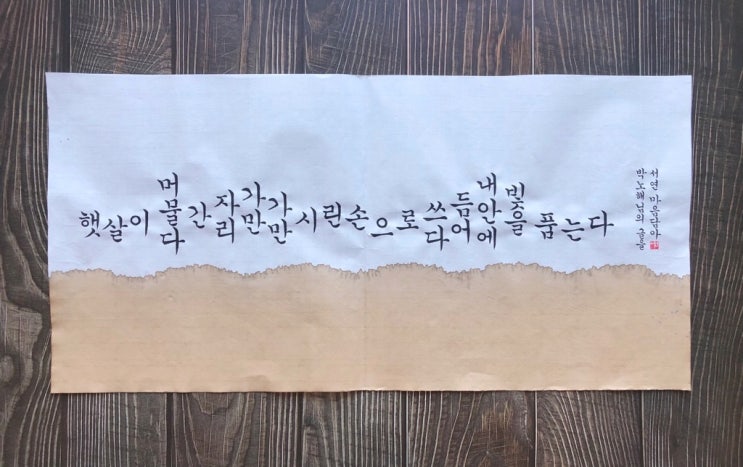 햇살이 머물다 간 자리 가만 가만 시린 손으로 쓰다듬어 내 안에 빛을 품는다
박노해님의 글을
서연 마음담아